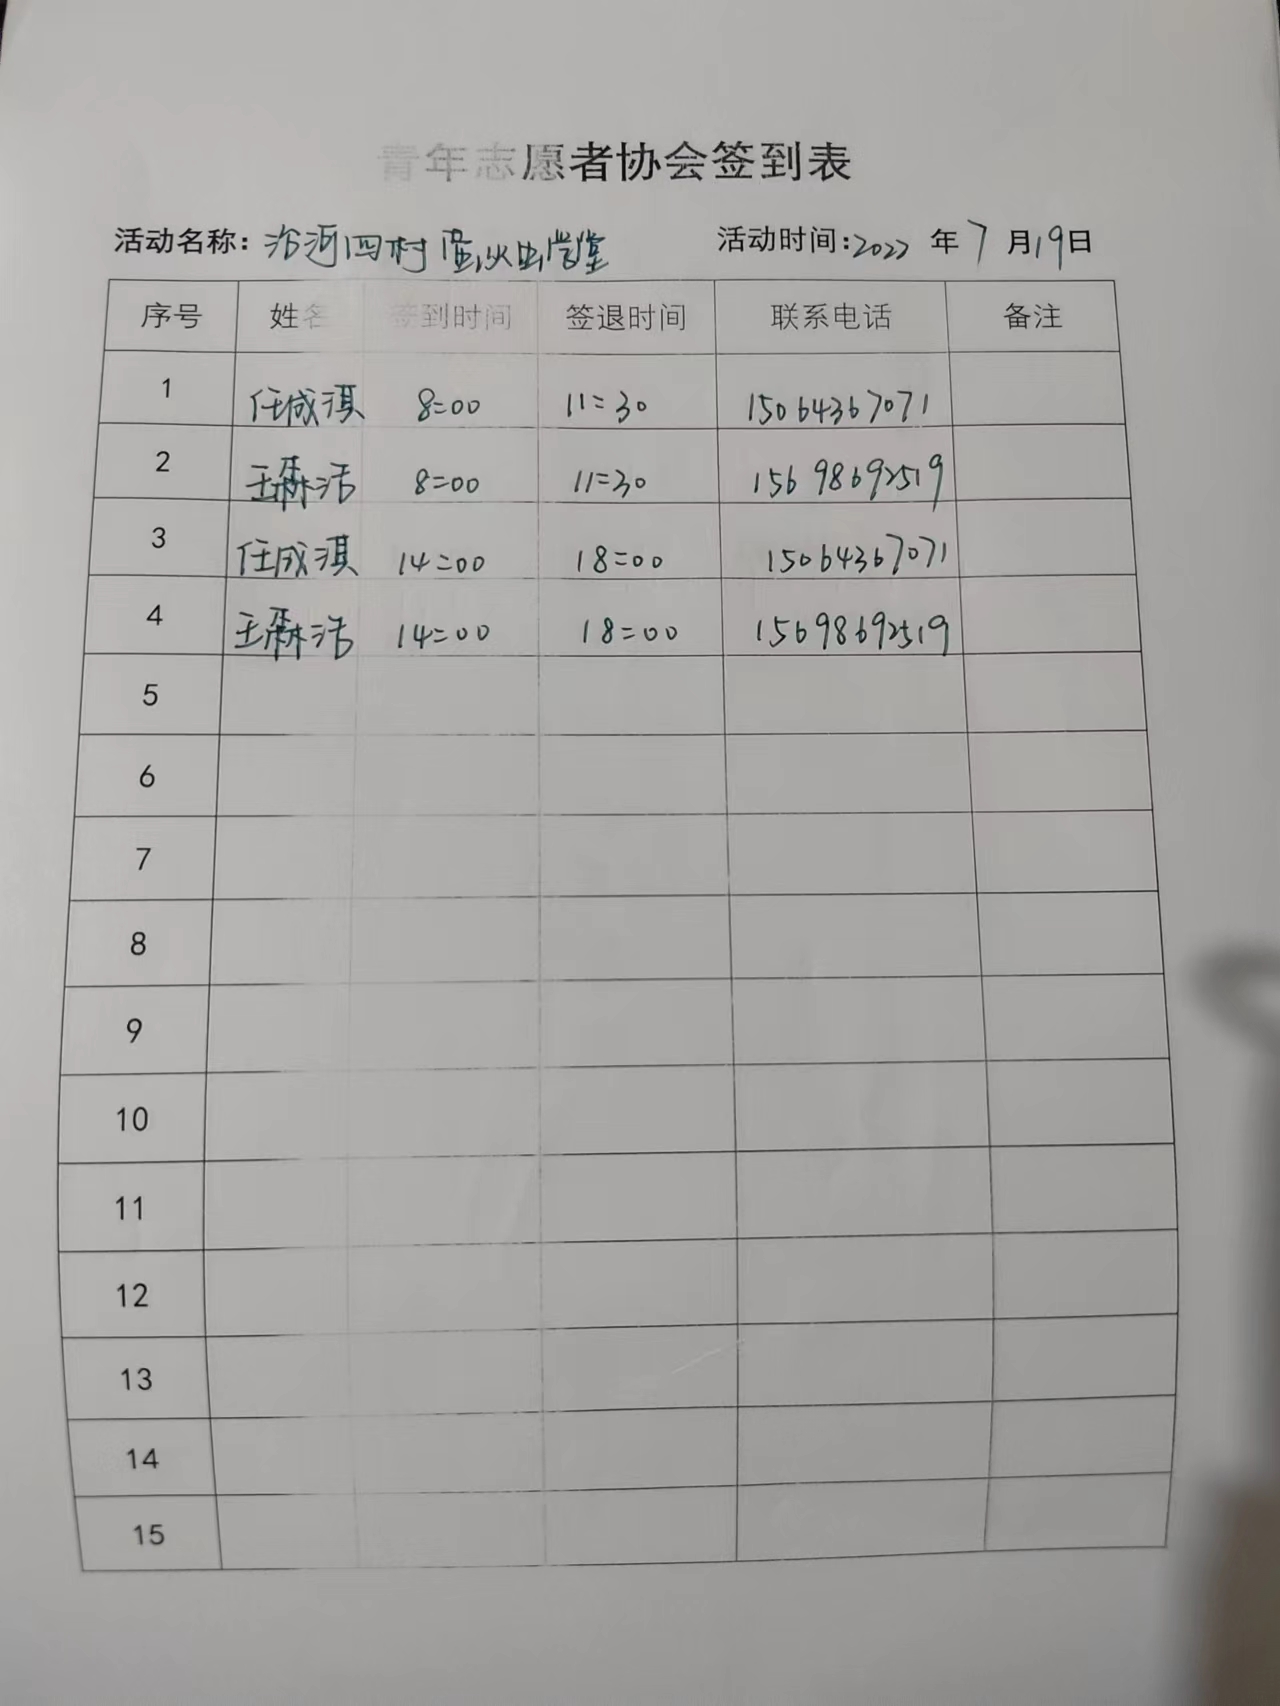 青年志愿者协会签到表
活动名称: 汾河四村萤火虫学堂 活动时间:2022 年 7 月 19 日
序号 姓名 签到时间 签退时间 联系电话 备注
1 任成淇 8:00 11:30 15064367071
2 王森浩 8:00 11:30 15698692519
3 任成淇 14:00 18:00 15064367071
4 王森浩 14:00 18:00 15698692519
5
6
7
8
9
10
11
12
13
14
15